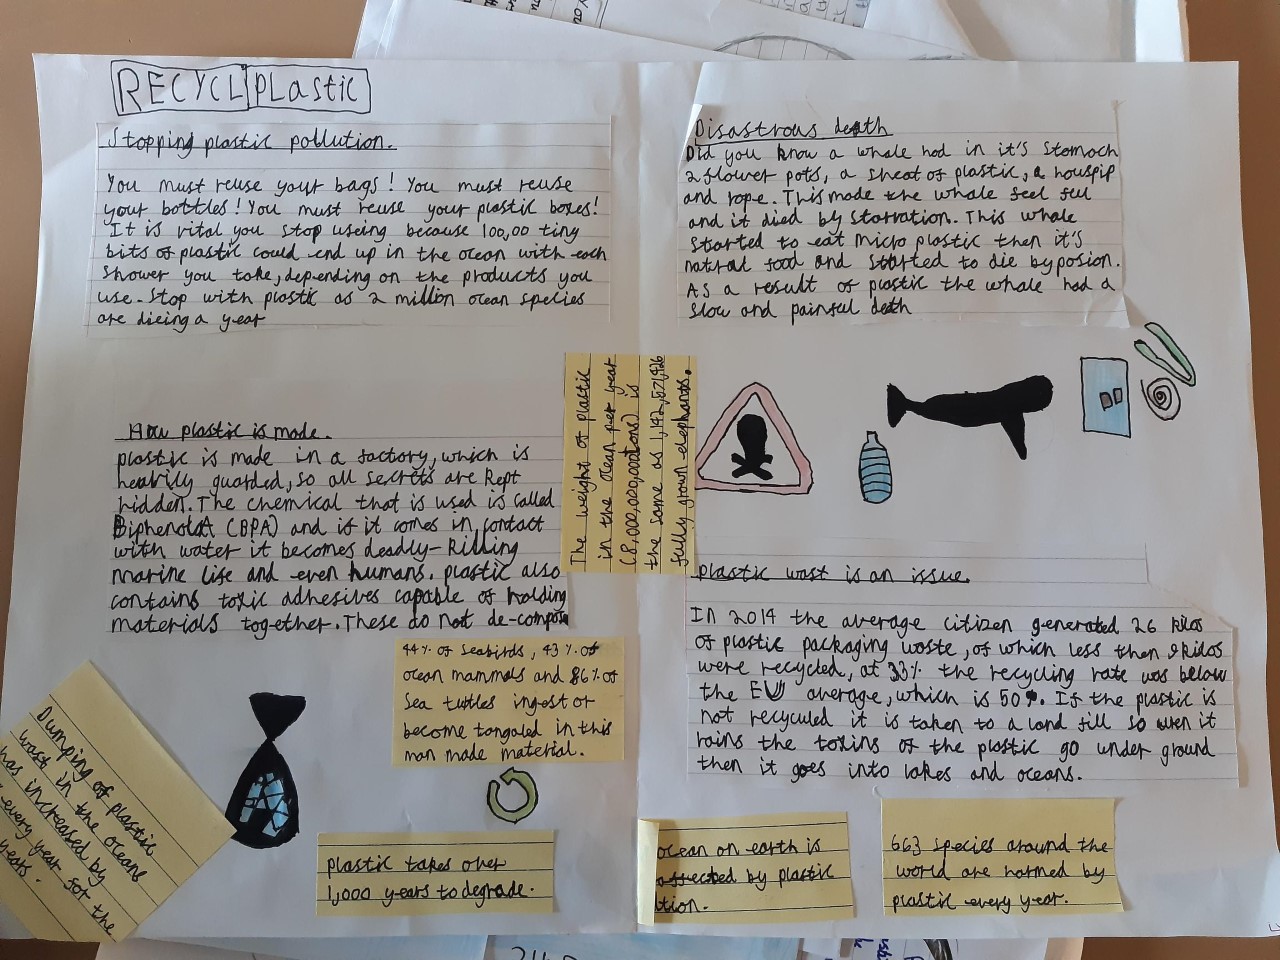 RECYCLPLastic
Stopping plastic pollution.
You must reuse your bags! You must reuse
your bottles! You must reuse your plastic boxes!
It is vital you stop useing because 100,00 tiny
bits of plastic could end up in the ocean with each
shower you take, depending on the products you
use. Stop with plastic as 2 million ocean species
are dieing a year
How plastic is made.
plastic is made in a factory, which is
heavily guarded, so all secrets are kept
hidden. The chemical that is used is called
BiphenolA (BPA) and if it comes in contact
with water it becomes deadly-killing
marine life and even humans. plastic also
contains toxic adhesives capable of holding
materials together. These do not de-compose
44% of seabirds, 43% of
ocean mammals and 86% of
sea turtles ingest or
become tangaled in this
man made material.
Dumping of plastic
wast in the oceans
has increased by
every year for the
years.
plastic takes over
1,000 years to degrade.
The weight of plastic
in the ocean per year
(8,000,000,000tons) is
the same as
fully grown elephants.
Disastrous death
Did you know a whale had in it's stomach
2 flower pots, a sheat of plastic, a houspip
and rope. This made the whale feel ful
and it died by starvation. This whale
started to eat micro plastic then it's
natral food and started to die by posion.
As a result of plastic the whale had a
slow and painful death
plastic wast is an issue.
In 2014 the average citizen generated 26 kilos
of plastic packaging waste, of which less then 9 kilos
were recycled, at 33% the recycling rate was below
the EU average, which is 50%. If the plastic is
not recyculed it is taken to a land fill so wen it
rains the toxins of the plastic go under ground
then it goes into lakes and oceans.
ocean on earth is
affected by plastic
ution.
663 species around the
world are harmed by
plastic every year.